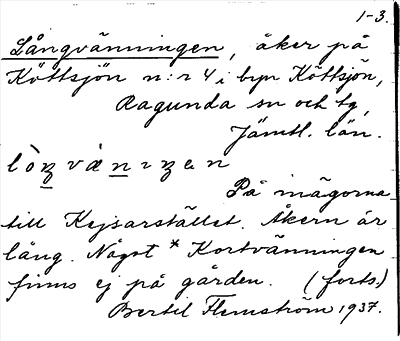 1-3.
Långvänningen, åker på
Köttsjön n:r 4 i byn Köttsjön,
Ragunda sn och tg,
Jämtl. län.
På inägorna
till Kejsarstället. Åkern är
lång. Något * Kortvänningen
finns ej på gården. (forts.)
Bertil Flemström 1937.